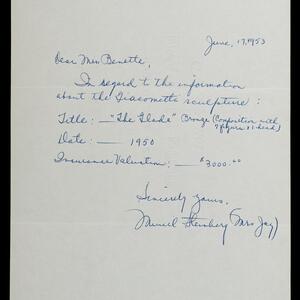 June, 17, 1953
Dear Mrs. Benette,
In regard to the information
about the Giacometti sculpture:
Title: — "The Glade" Bronze (Composition with
9 figures & 1 head)
Date: — 1950
Insurance Valuation: — $3000.00
Sincerely yours,
Muriel Steinberg (Mrs Jay)